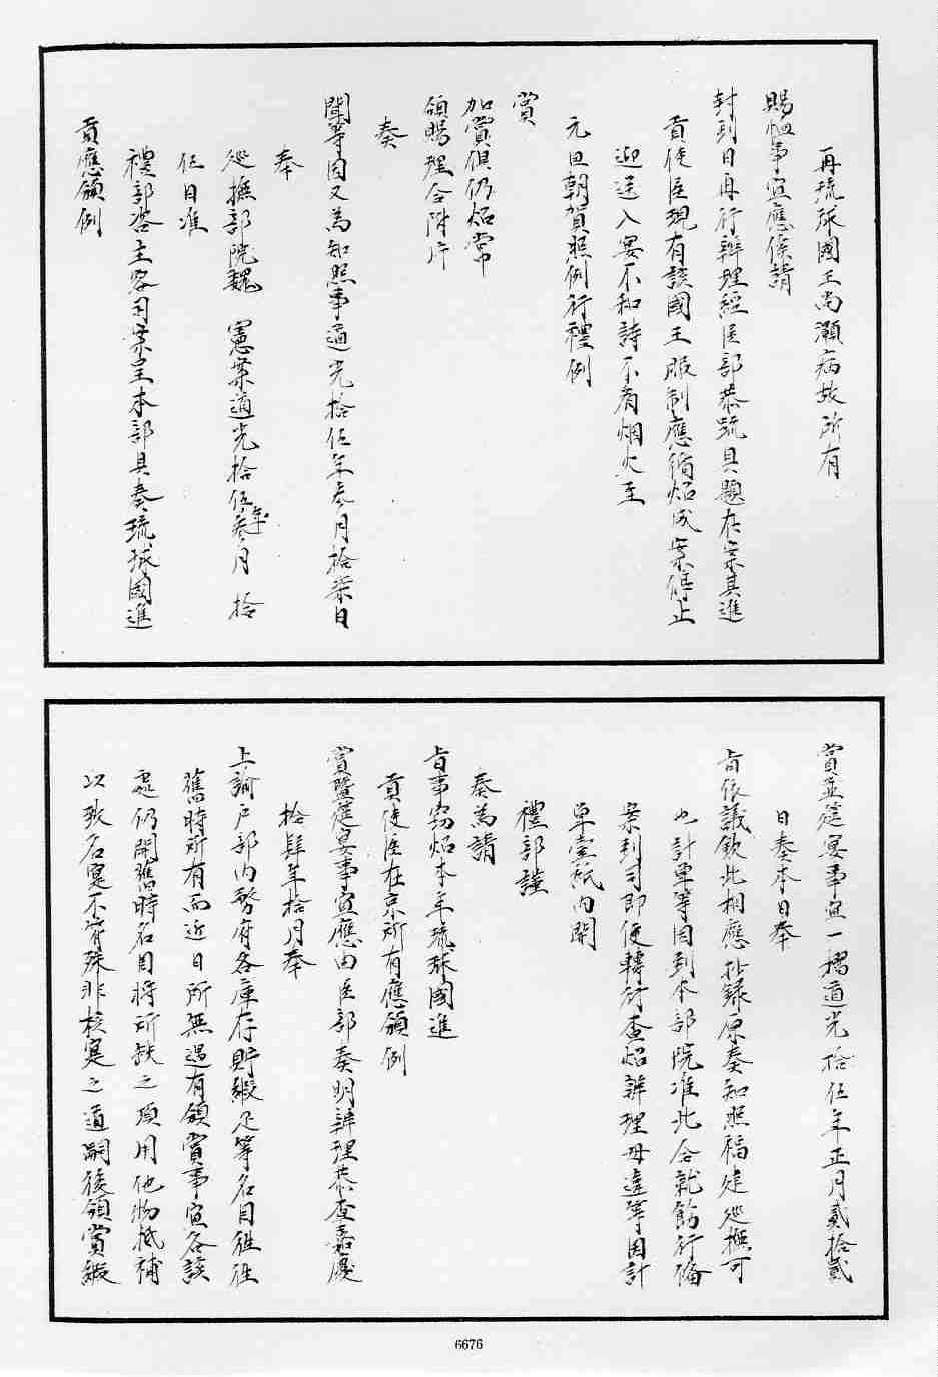 再琉球國王尚灝病故所有
賜恤事宜應俟請
封到日再行辦理經臣部恭疏具題在案其進
貢使臣現有該國王服制應循照成案停止
迎送入宴不和詩不看烟火至
元旦朝賀照例行禮例
賞
加賞俱仍照常
領賜理合附片
奏
聞等因又為知照事道光拾伍年叁月拾柒日
奉
巡撫部院魏 憲案道光拾伍年叁月 拾
伍日准
禮部咨主客司案呈本部具奏琉球國進
貢應領例
賞並筵宴事宜一摺道光拾伍年正月貳拾貳
日奏本日奉
旨依議欽此相應抄錄原奏知照福建巡撫可
也計單等因到本部院准此合就飭行備
案到司即便轉行查照辦理毋違等因計
單壹紙內開
禮部謹
奏為請
旨事竊照本年琉球國進
貢使臣在京所有應領例
賞暨筵宴事宜應由臣部奏明辦理恭查嘉慶
拾肆年拾月奉
上諭戶部內務府各庫存貯緞疋等名目往往
舊時所有而近日所無遇有領賞事宜各該
處仍開舊時名目將所缺之項用他物抵補
以致名寔不符殊非核寔之道嗣後領賞緞
6676